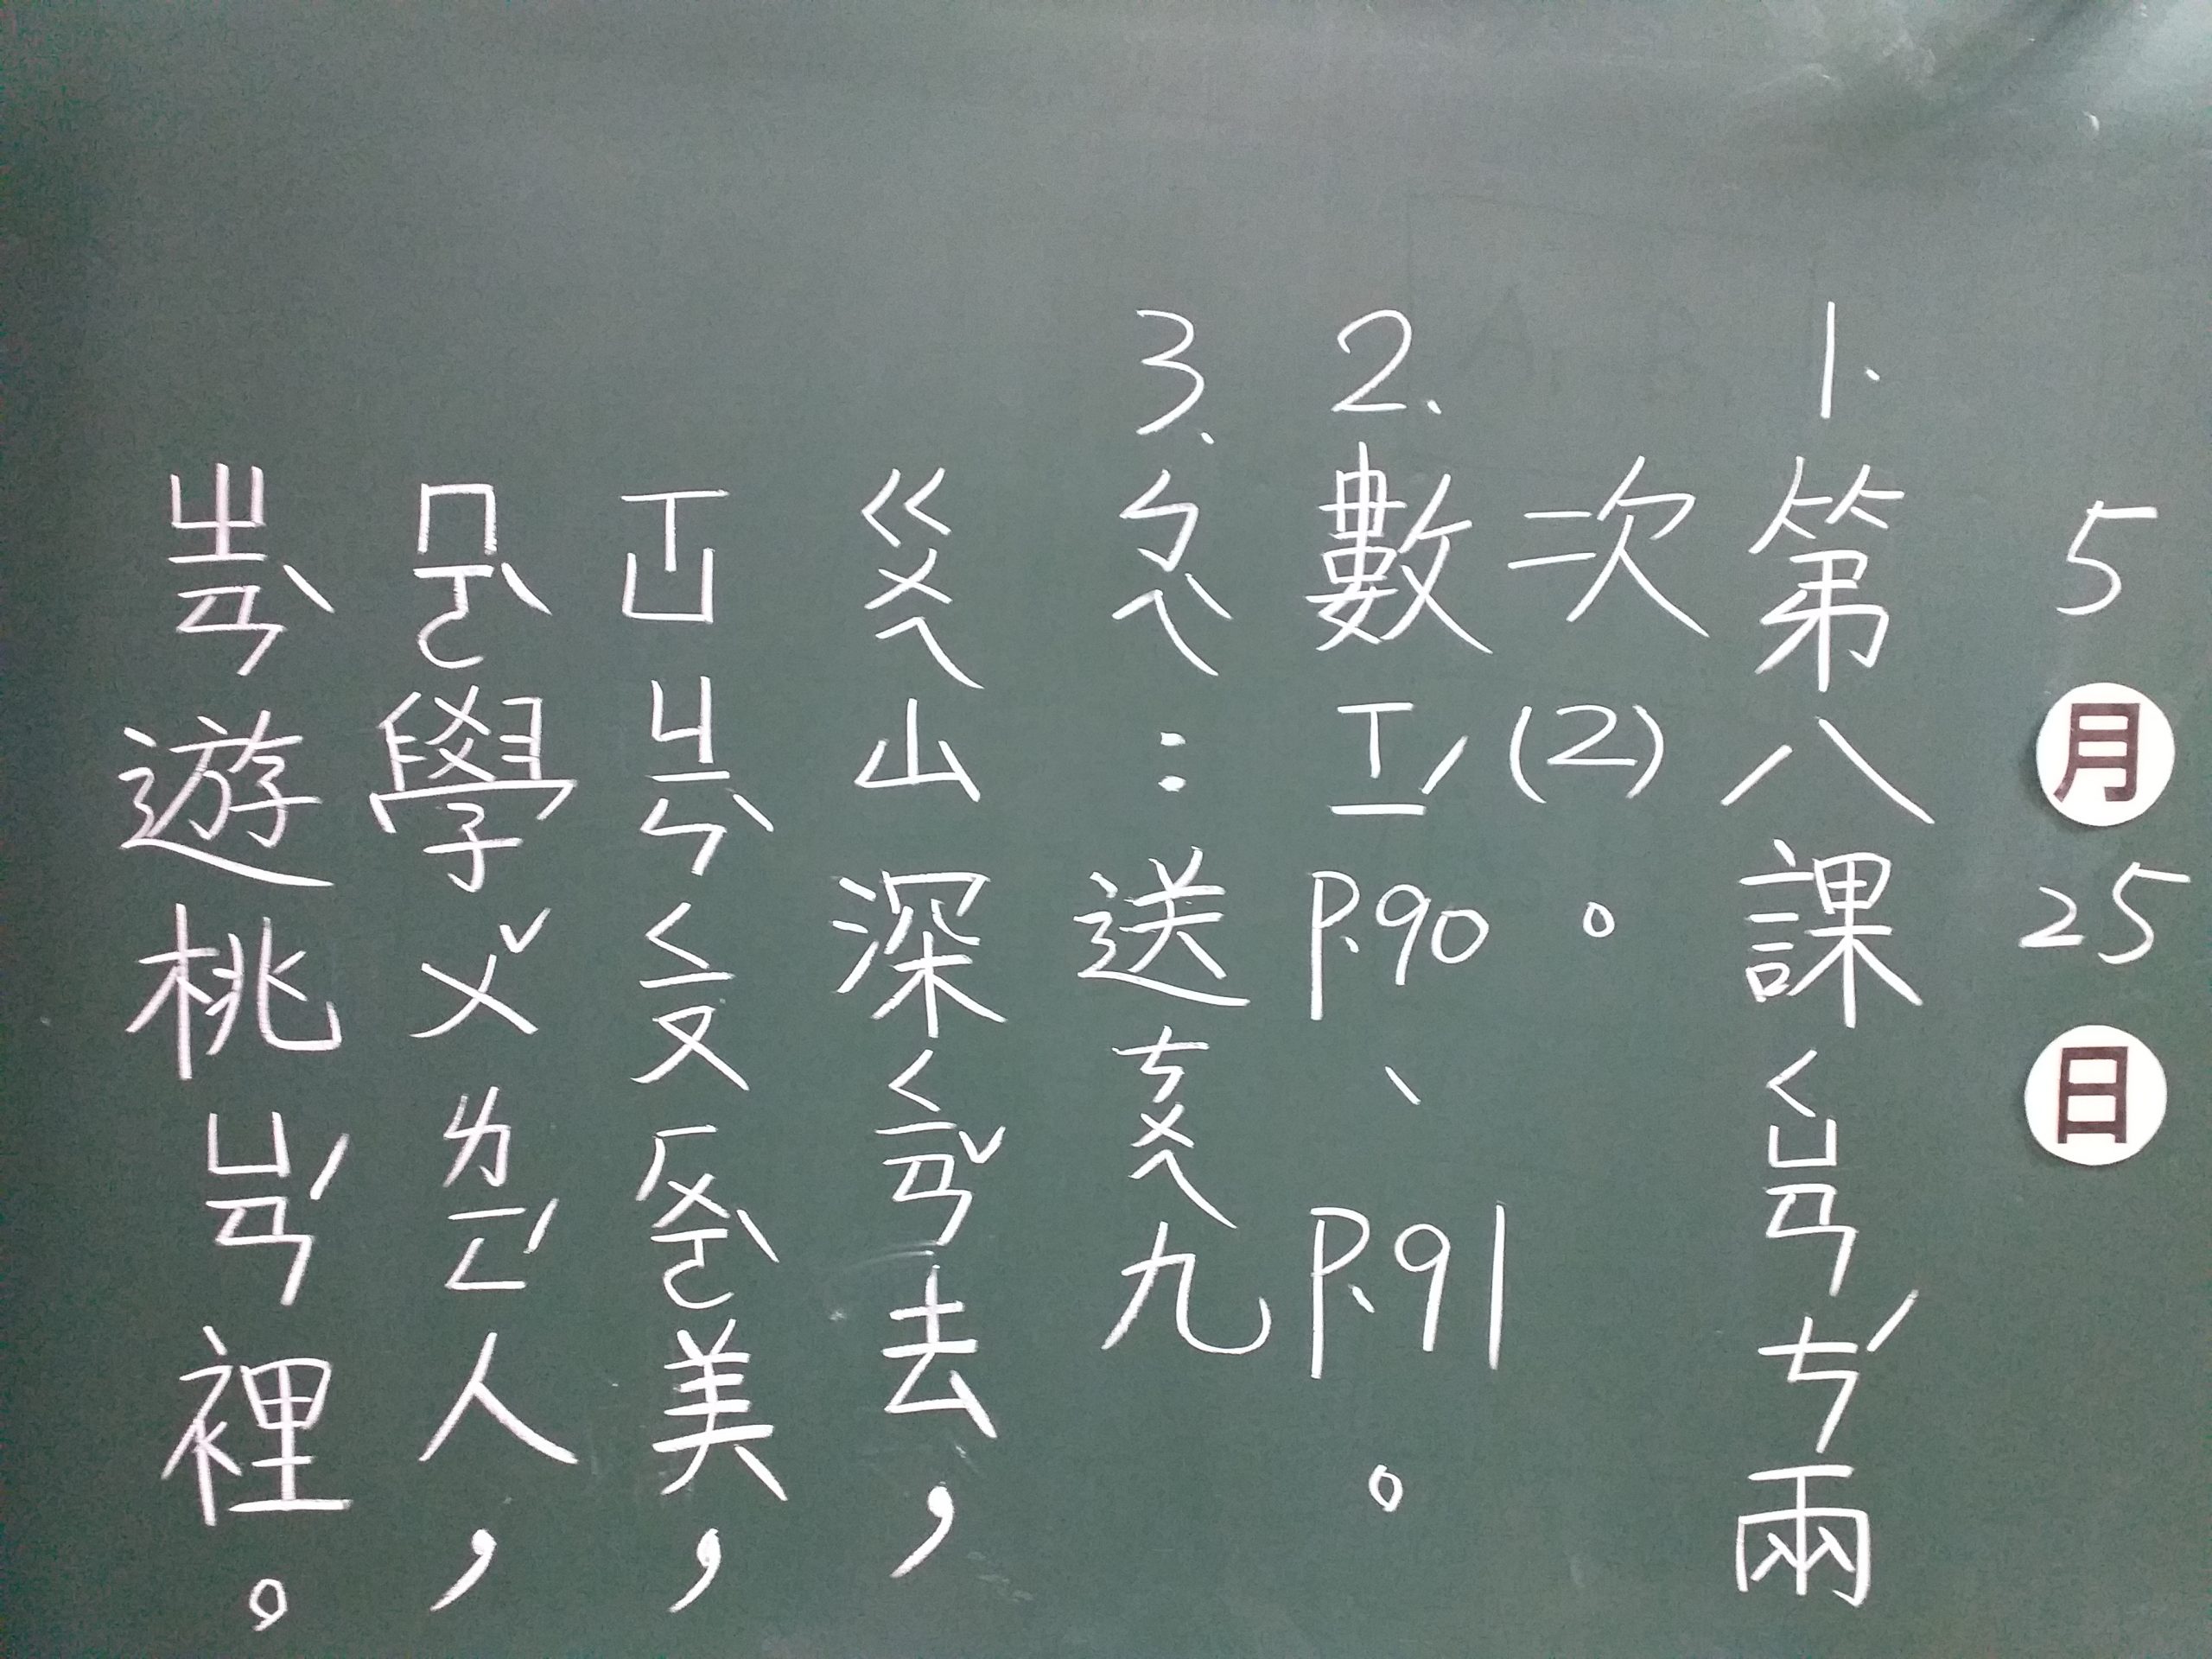 5月25日
1.第八課ㄑㄩㄢˊㄘˊ兩
次(2)。
2、數ㄒㄧˊP.90、P.91。
3、ㄅㄟˋ：送ㄘㄨㄟ九
ㄍㄨㄟ山深ㄑㄧㄢˇ去，
ㄒㄩㄐㄧㄣˋㄑㄧㄡㄏㄨㄛˋ美，
ㄇㄛˋ學ㄨˇㄌㄧㄥˊ人，
ㄓㄢˋ遊桃ㄩㄢˊ裡。